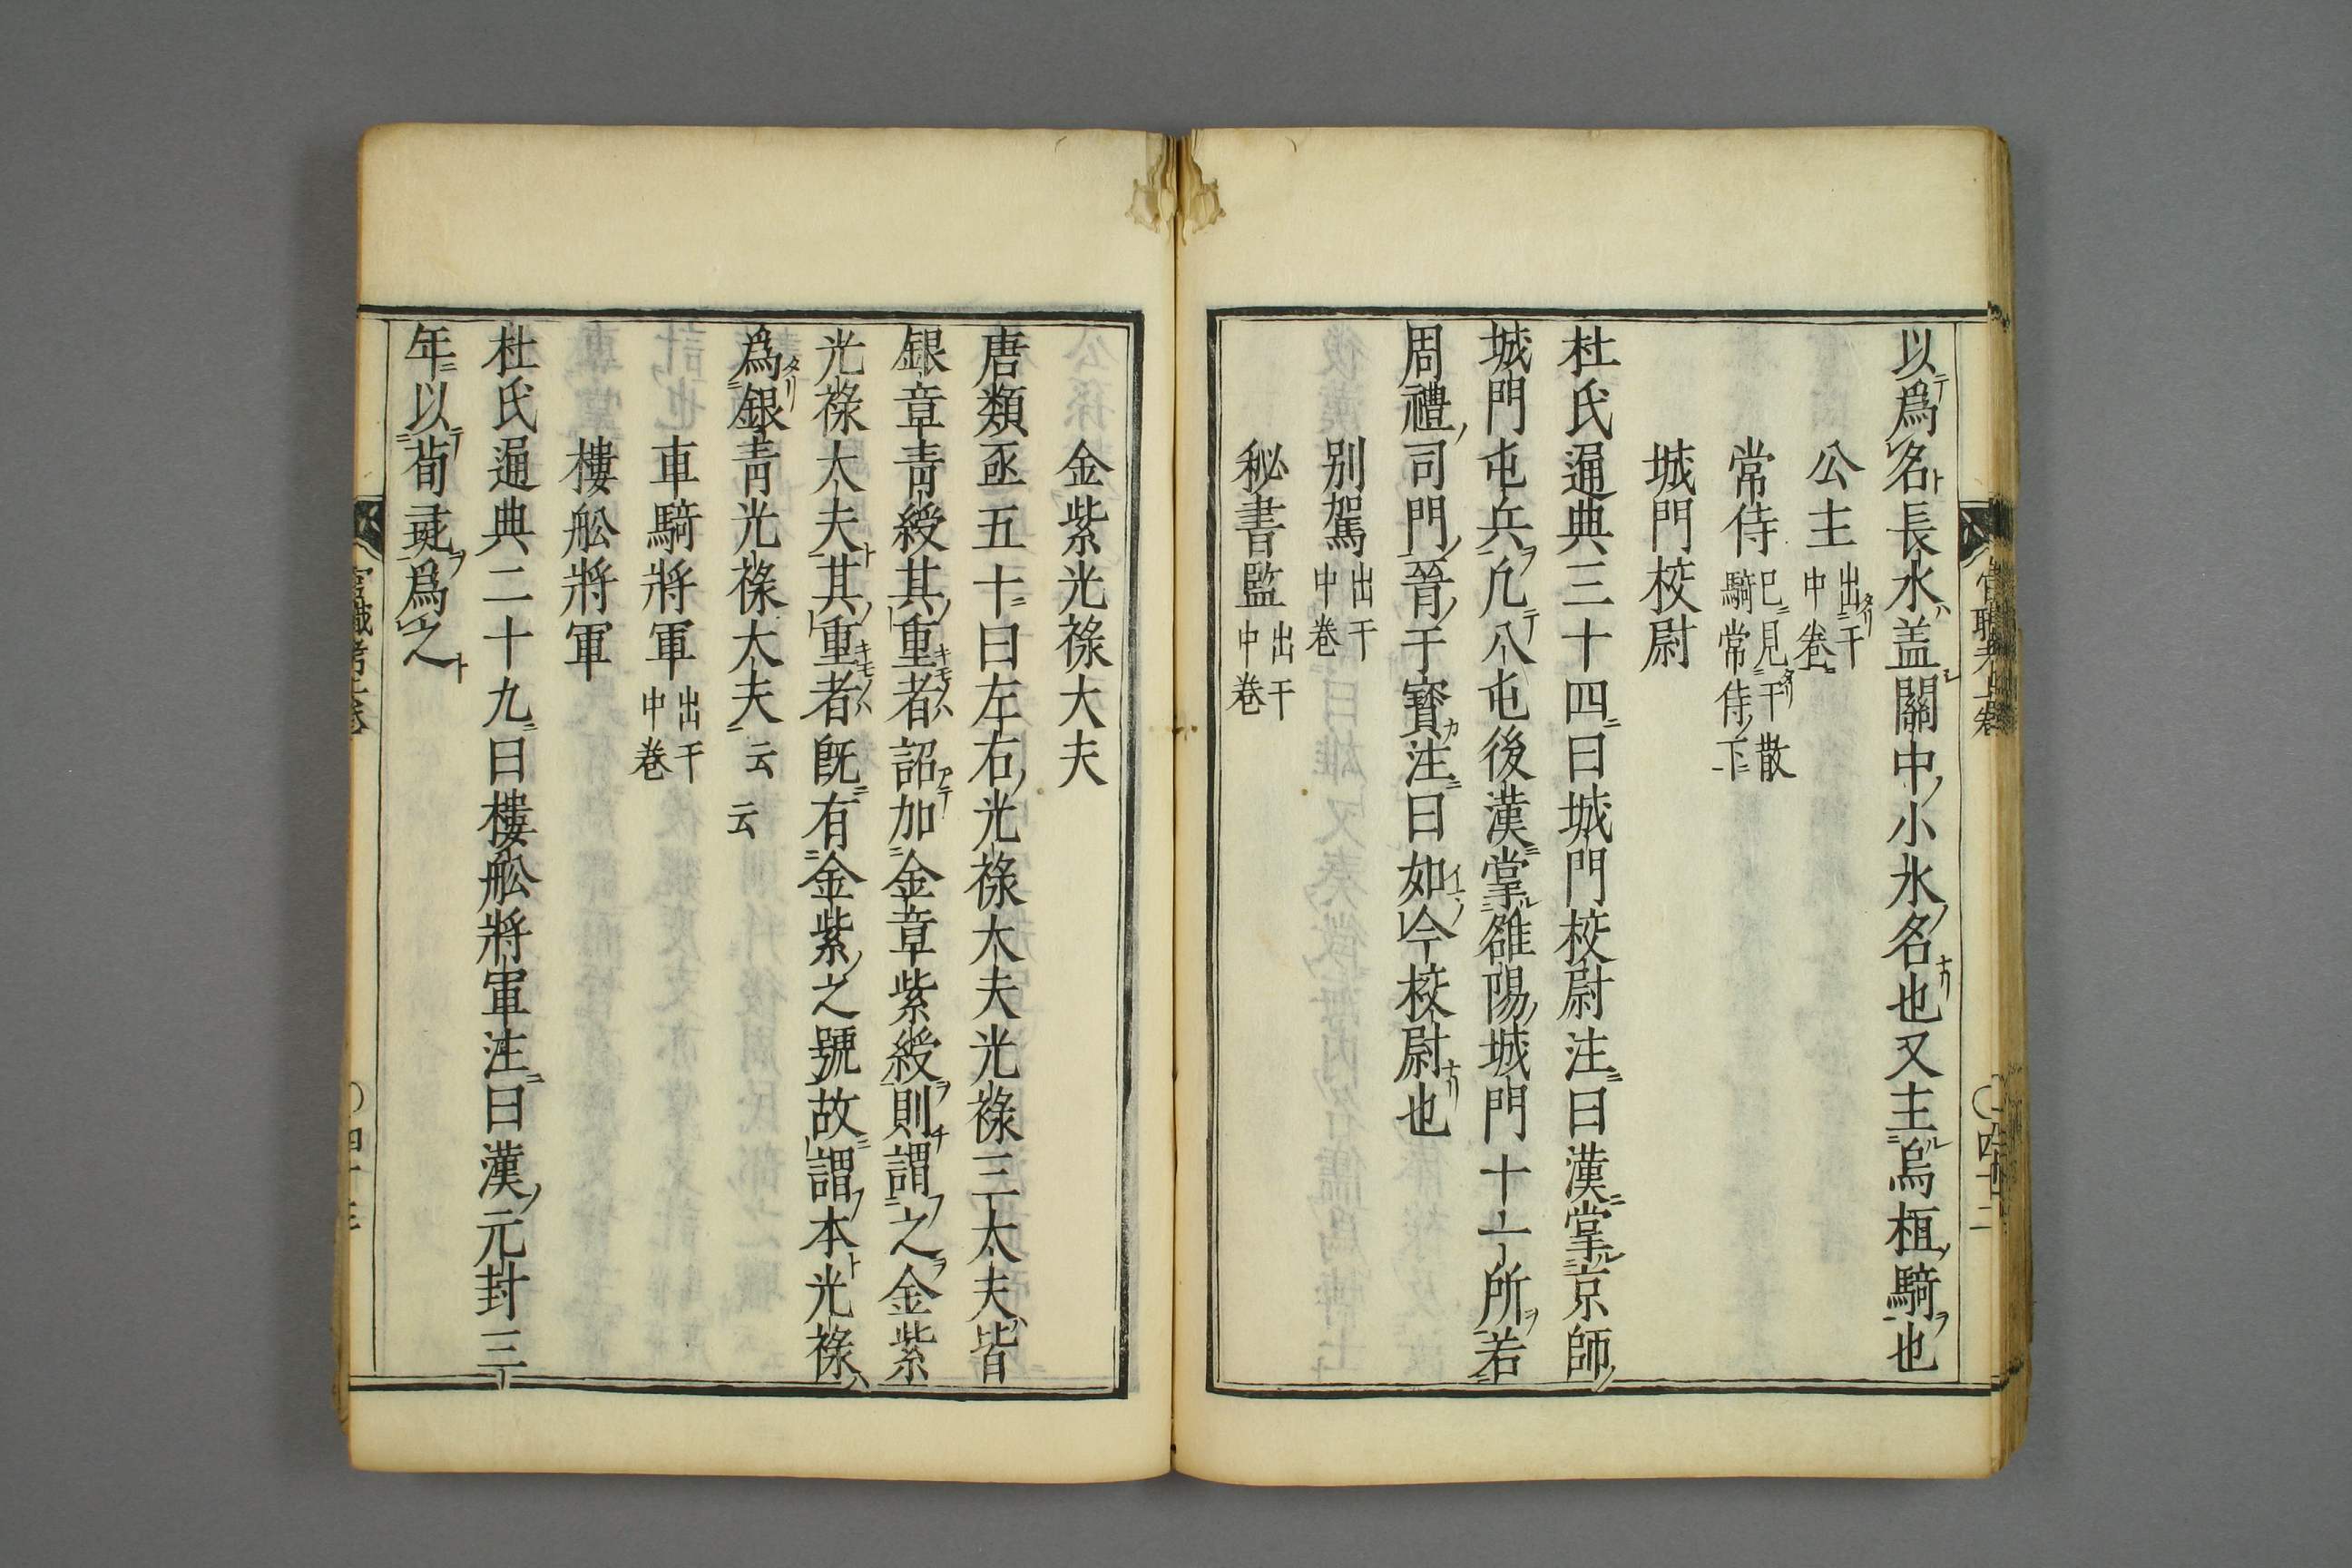 以爲名長水盖關中小水名也又主烏桓騎也
公主出于中卷
常侍已見于散騎常侍下
城門校尉
杜氏通典三十四曰城門校尉注曰漢掌京師
城門屯兵凡八屯後漢掌雒陽城門十二所若
周禮司門晉于寳注曰如今校尉也
别駕出于中卷
秘書監出于中卷
金紫光祿大夫
唐類函五十曰左右光祿大夫光祿三大夫皆
銀章青綬其重者詔加金章紫綬則謂之金紫
光祿大夫其重者既有金紫之號故謂本光祿
爲銀青光祿大夫云云
車騎將軍出于中卷
樓舩將軍
杜氏通典二十九曰樓舩將軍注曰漢元封三
年以荀彘爲之